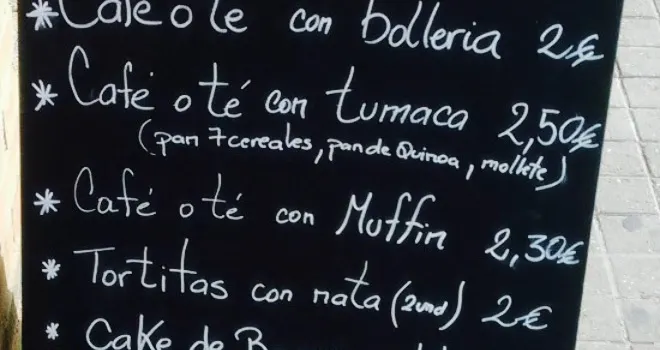 * Café o té con bolleria 2€
* Café o té con tumaca 2,50€
(pan 7 cereales, pan de Quinoa, mollete)
* Café o té con Muffin 2,30€
* Tortitas con nata (2und) 2€
* Cake de